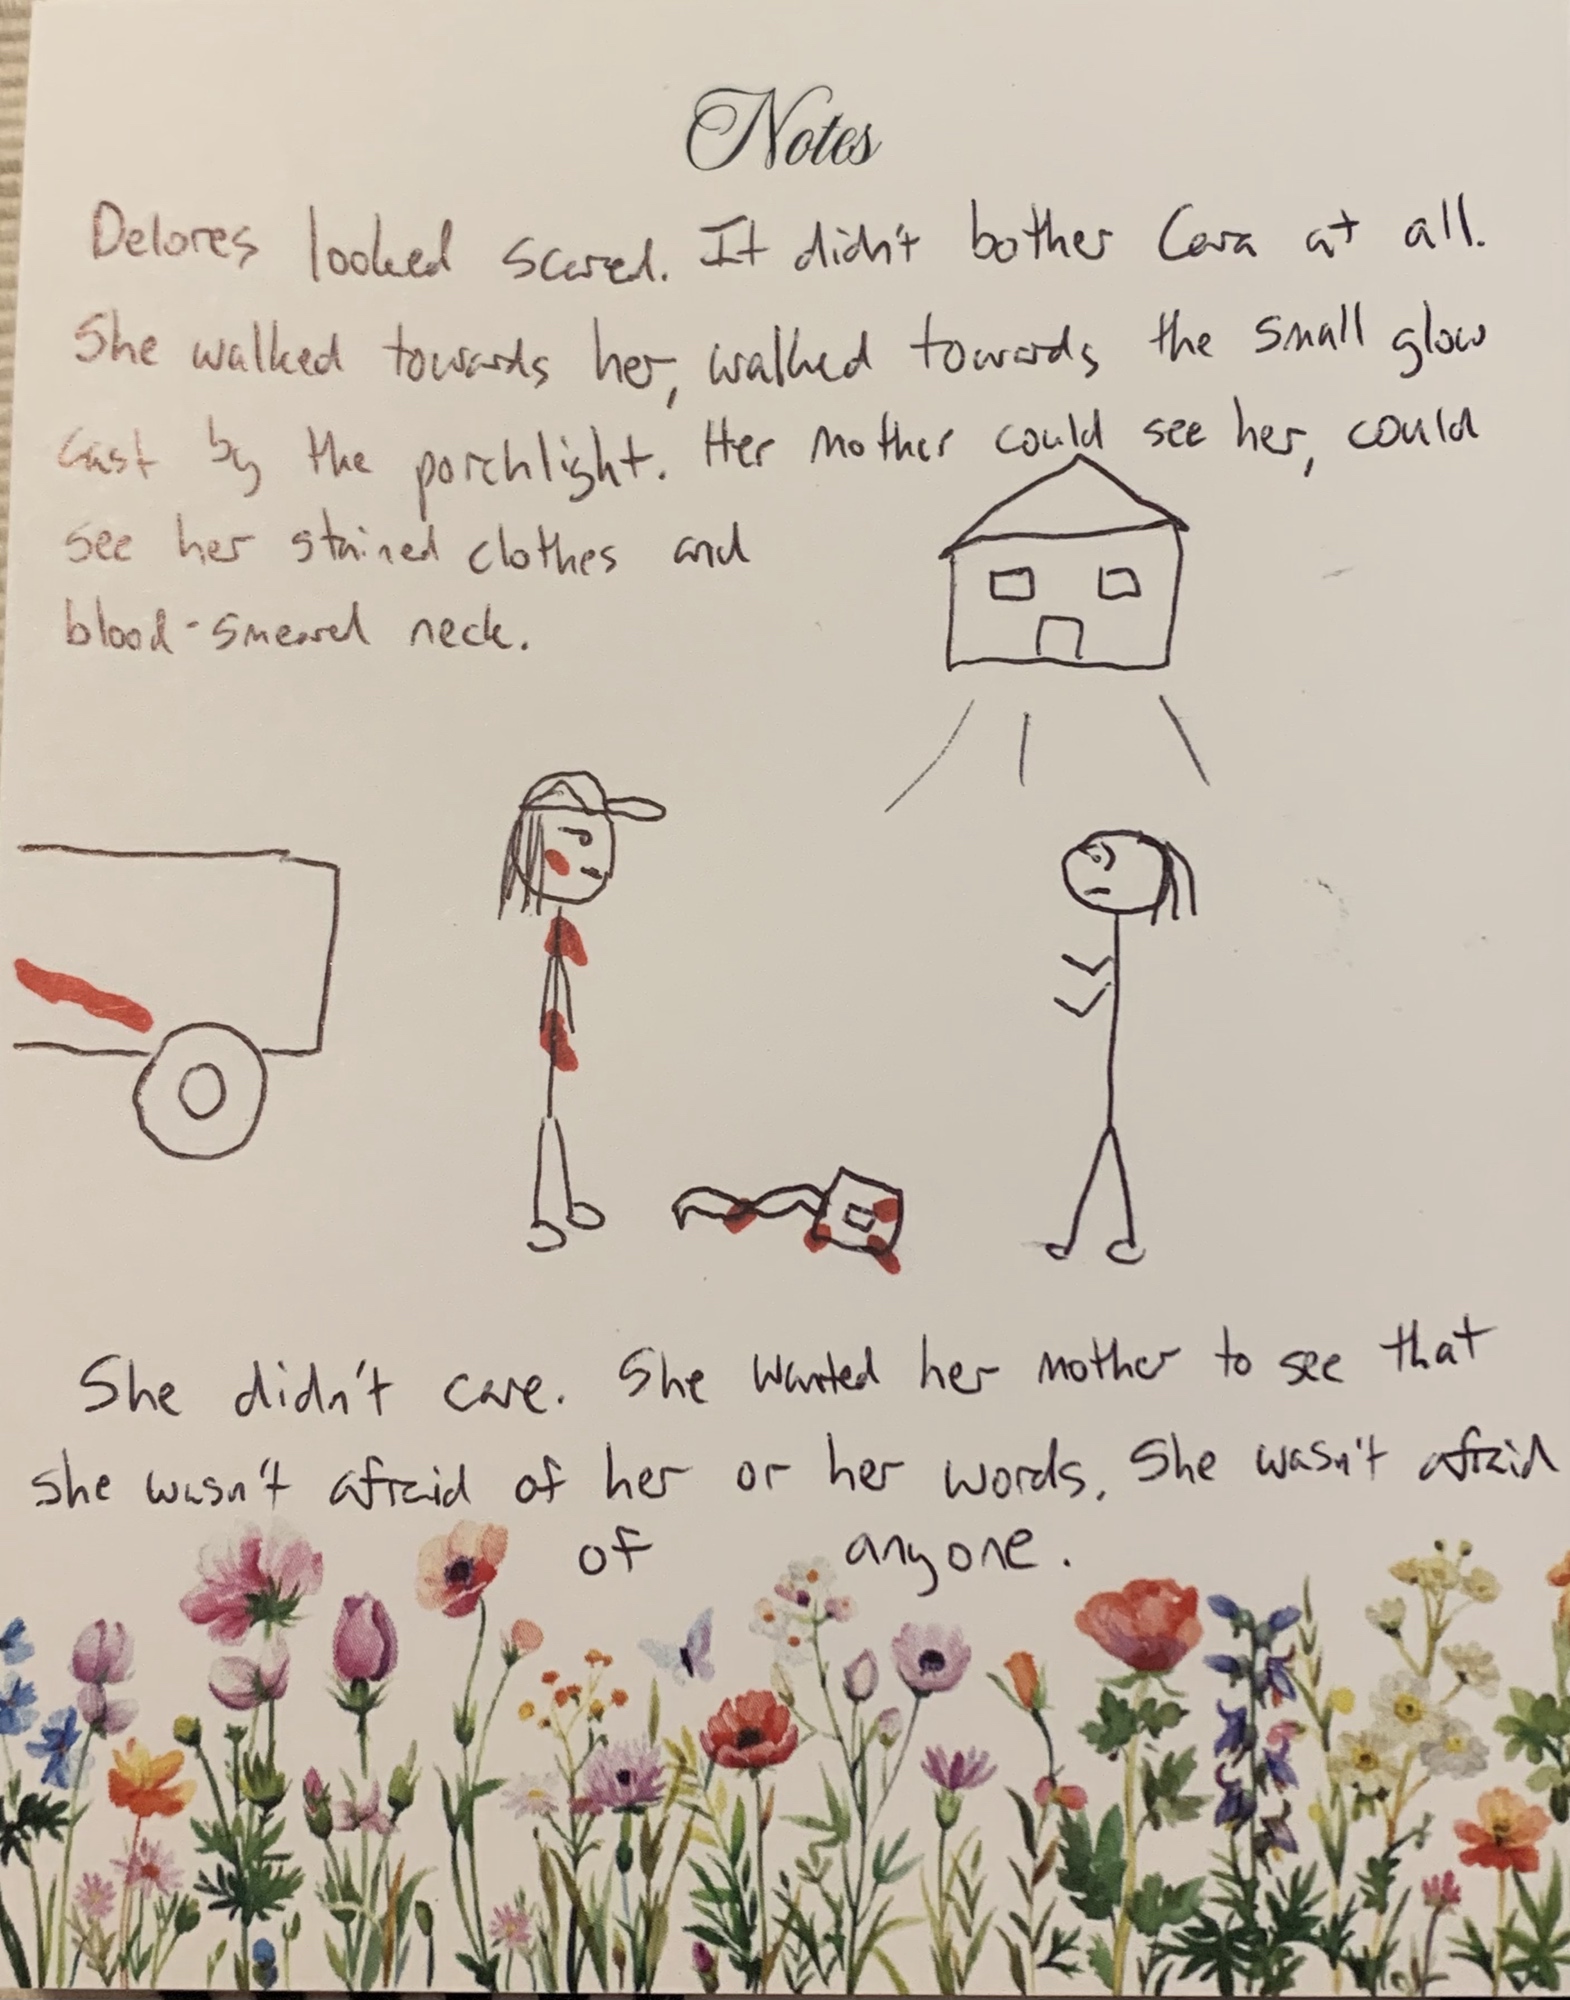 Notes
Delores looked scared. It didn't bother Cara at all.
She walked towards her, walked towards the small glow
cast by the porchlight. Her mother could see her, could
see her stained clothes and
blood-smeared neck.
She didn't care. She wanted her mother to see that
she wasn't afraid of her or her words. She wasn't afraid
of anyone.